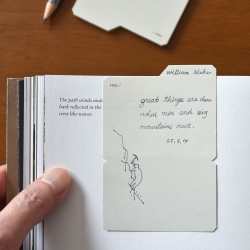 William Blake
PAGE /
great things are done
when men and big
mountains meet.
25.3.14
The path winds
bark reflected in the
over the waves.